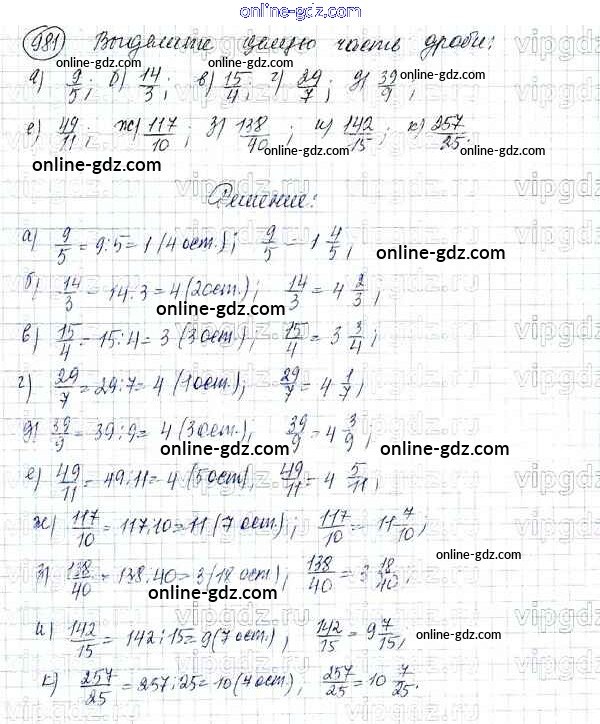 online-gdz.com
981) Выделите целую часть дроби:
а) 9/5; б) 14/3; в) 15/4; г) 29/7; д) 39/9; online-gdz.com
е) 49/11; ж) 117/10; з) 138/40; и) 142/15; к) 257/25.
online-gdz.com online-gdz.com online-gdz.com
Решение:
а) 9/5 = 9:5 = 1 (4 ост.); 9/5 = 1 4/5; online-gdz.com
б) 14/3 = 14:3 = 4 (2 ост.); 14/3 = 4 2/3;
online-gdz.com
в) 15/4 = 15:4 = 3 (3 ост.); 15/4 = 3 3/4; online-gdz.com
г) 29/7 = 29:7 = 4 (1 ост.); 29/7 = 4 1/7;
online-gdz.com
д) 39/9 = 39:9 = 4 (3 ост.); 39/9 = 4 3/9;
online-gdz.com online-gdz.com
е) 49/11 = 49:11 = 4 (5 ост.), 49/11 = 4 5/11;
ж) 117/10 = 117:10 = 11 (7 ост.); 117/10 = 11 7/10;
online-gdz.com
з) 138/40 = 138:40 = 3 (18 ост.); 138/40 = 3 18/40;
online-gdz.com
и) 142/15 = 142:15 = 9 (7 ост.), 142/15 = 9 7/15; online-gdz.com
к) 257/25 = 257:25 = 10 (7 ост.); 257/25 = 10 7/25.
online-gdz.com online-gdz.com
vipgdz.ru